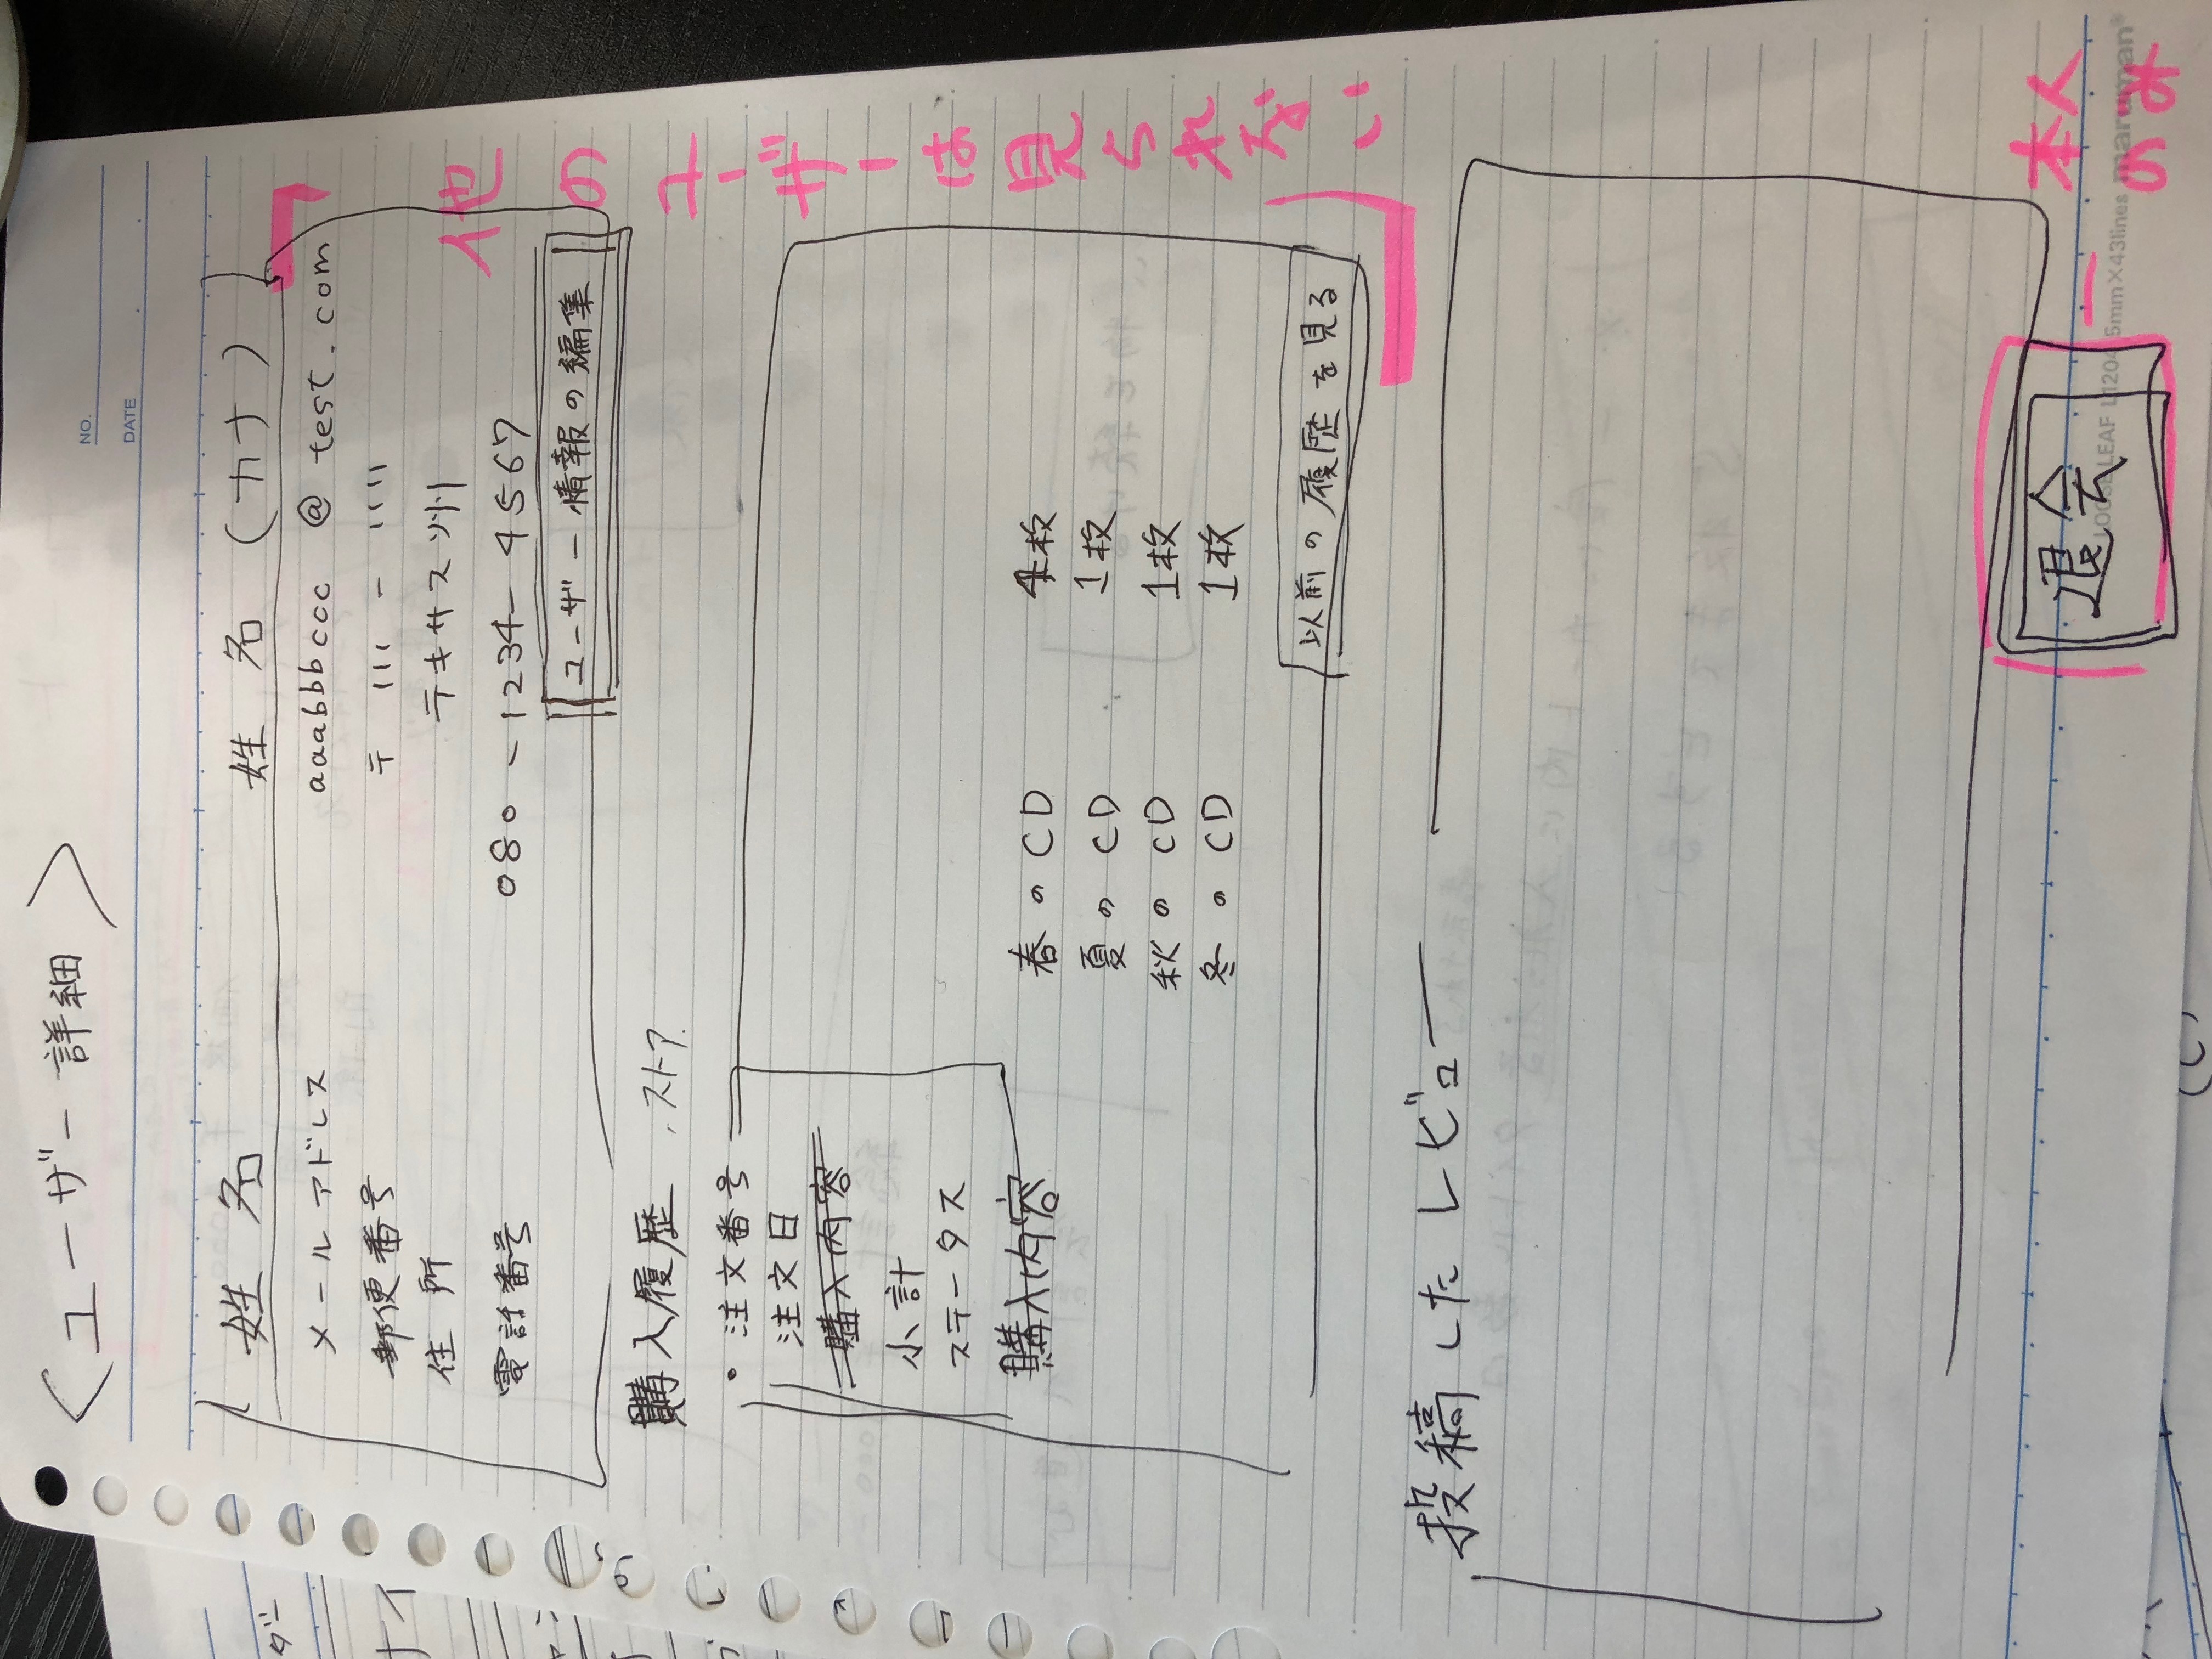 <ユーザー詳細>
NO.
DATE
姓 名 姓 名 (カナ)
メールアドレス aaabbbccc @ test.com
郵便番号 〒 111 - 1111
住所 テキサス州
電話番号 080 - 1234 - 4567
ユーザー情報の編集
他のユーザーは見られない
購入履歴 ストア
・注文番号
注文日
購入内容
小計
ステータス
購入内容 春のCD 1枚
夏のCD 1枚
秋のCD 1枚
冬のCD 1枚
以前の履歴を見る
投稿したレビュー
退会 ー 本人のみ
LOOSE LEAF L1204 5mm×43lines maruman®